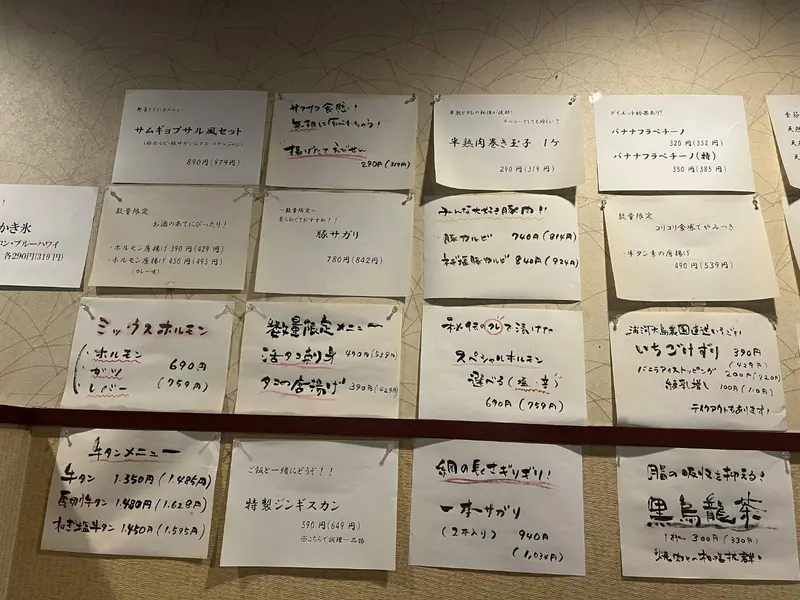 野菜もとれるメニュー
サムギョプサル風セット
890円(979円)
サクサク食感!
気軽に食べれちゃう!
揚げたてえびせん
290円(319円)
半熟とタレの相性が抜群!
メニューとしても珍しい?
半熟肉巻き玉子 1ケ
290円(319円)
ダイエット効果あり?
バナナフラペチーノ
320円(352円)
バナナフラペチーノ(特)
350円(385円)
季節
天然
天然
!
かき氷
ロン・ブルーハワイ
各290円(319円)
数量限定
お酒のあてにぴったり!
・ホルモン唐揚げ 390円(429円)
・ホルモン唐揚げ 450円(495円)
(カレー味)
~数量限定~
柔らかくておすすめ!!
豚サガリ
780円(842円)
みんな大好き豚肉!!
・豚カルビ 740円(814円)
・ねぎ塩豚カルビ 840円(924円)
数量限定
コリコリ食感でやみつき
・牛タン素の唐揚げ
490円(539円)
ミックスホルモン
・ホルモン
・ガツ
・レバー
690円
(759円)
数量限定メニュー
活タコ刺身 490円(539円)
タコの唐揚げ 390円(429円)
秘伝のタレで漬けた
スペシャルホルモン
選べる(塩・辛)
690円(759円)
浦河大島農園直送いちご!
いちごけずり 390円
(429円)
バニラアイストッピング 200円(220円)
練乳増し 100円(110円)
テイクアウトもあります!
牛タンメニュー
牛タン 1.350円(1.485円)
厚切牛タン 1.480円(1.628円)
ねぎ塩牛タン 1.450円(1.595円)
ご飯と一緒にどうぞ!!
特製ジンギスカン
590円(649円)
※こちらで調理一品物
網の長さぎりぎり!
一本サガリ
(2本入り) 940円
(1,034円)
脂の吸収を抑える!
黒烏龍茶
300円(330円)
焼肉との相性抜群!